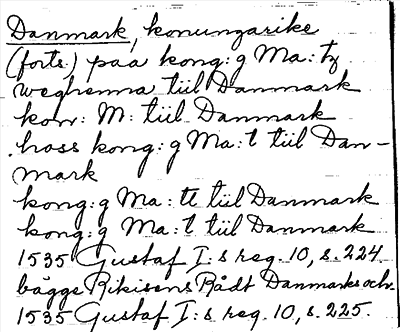 Danmark, konungarike
(forts.) paa kong: g Ma: tz
weghenna tiil Danmark
kon: M: tiil Danmark
hoss kong: g Ma: t tiil Dan-
mark
kong: g Ma: tt tiil Danmark
kong: g Ma: t tiil Danmark
1535 Gustaf I:s reg. 10, s. 224.
bägge Rikisens Rådt Danmarks och
1535 Gustaf I:s reg. 10, s. 225.